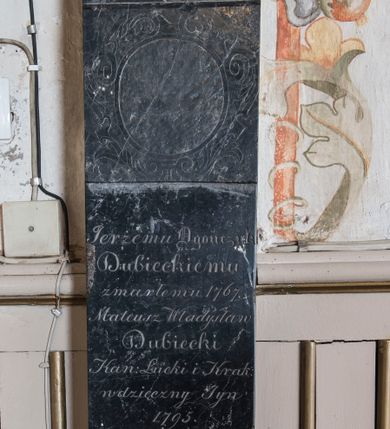 Jerzemu Ogończyk
Dubieckiemu
zmarłemu 1767.
Mateusz Władysław
Dubiecki
Kan: Łucki i Krak:
wdzięczny Syn
1795.